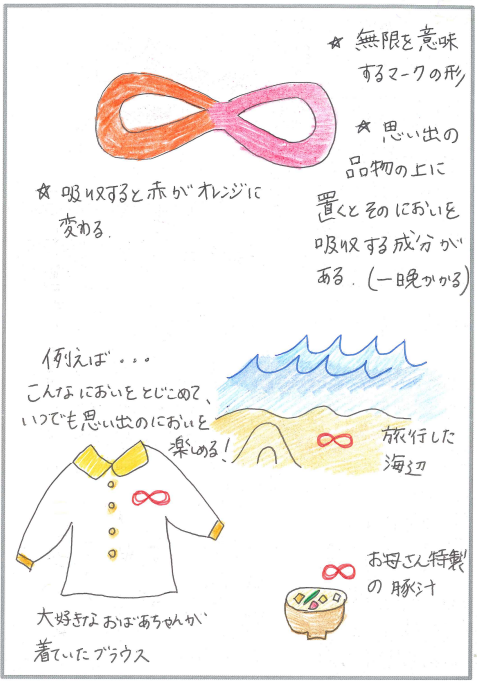 ☆ 無限を意味
するマークの形
☆ 思い出の
品物の上に
置くとそのにおいを
吸収する成分が
ある.(一晩かかる)
☆ 吸収すると赤がオレンジに
変わる.
例えば・・・
こんなにおいをとじこめて、
いつでも思い出のにおいを
楽しめる!
旅行した
海辺
お母さん特製
の豚汁
大好きなおばあちゃんが
着ていたブラウス